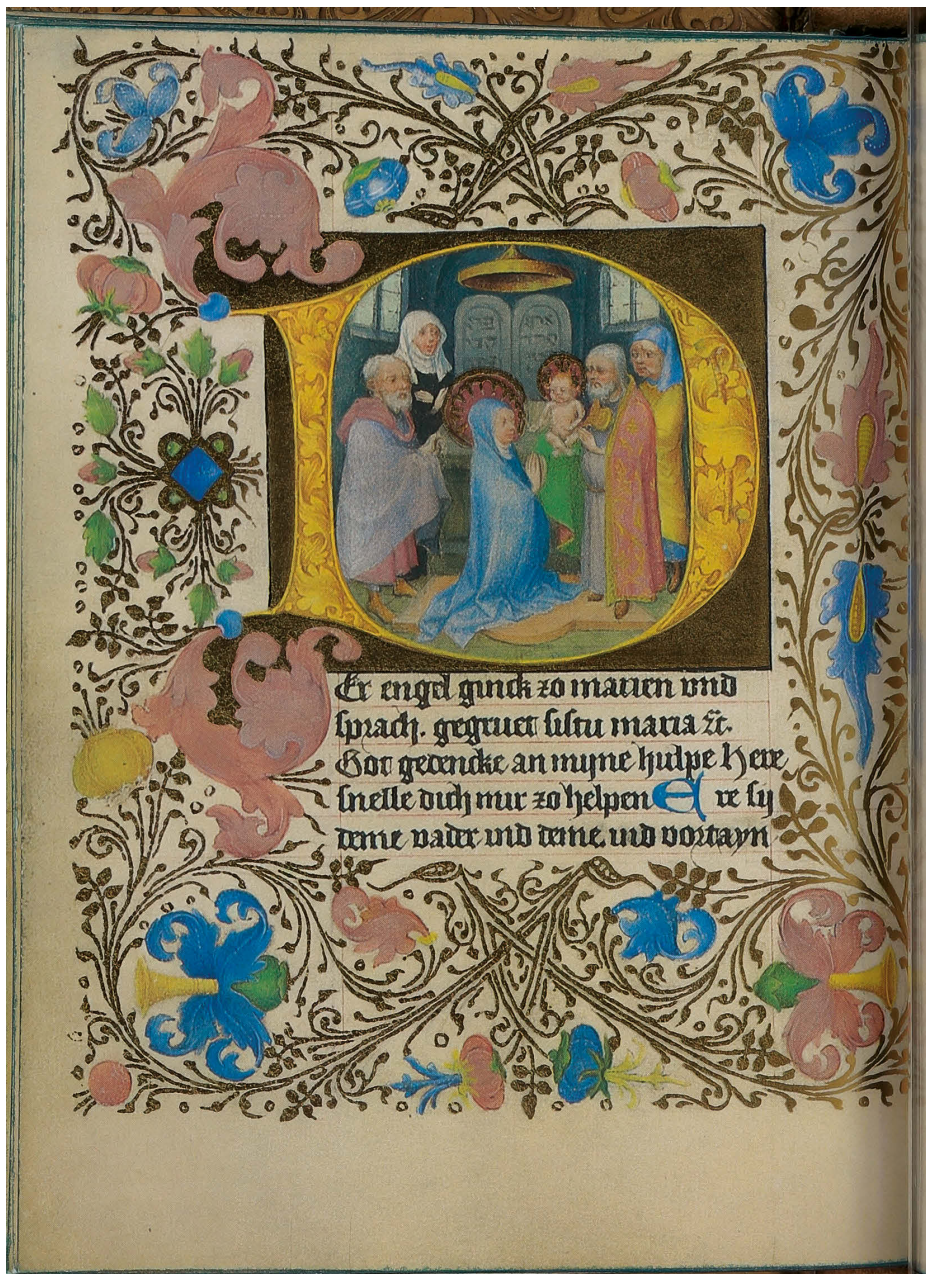 DEr engel ginck zo marien vnd
sprach. gegruet sistu maria ⁊c.
Got gedencke an myne hulpe Here
snelle dich mir zo helpen Ere sij
deme vader vnd deme, vnd vortayn